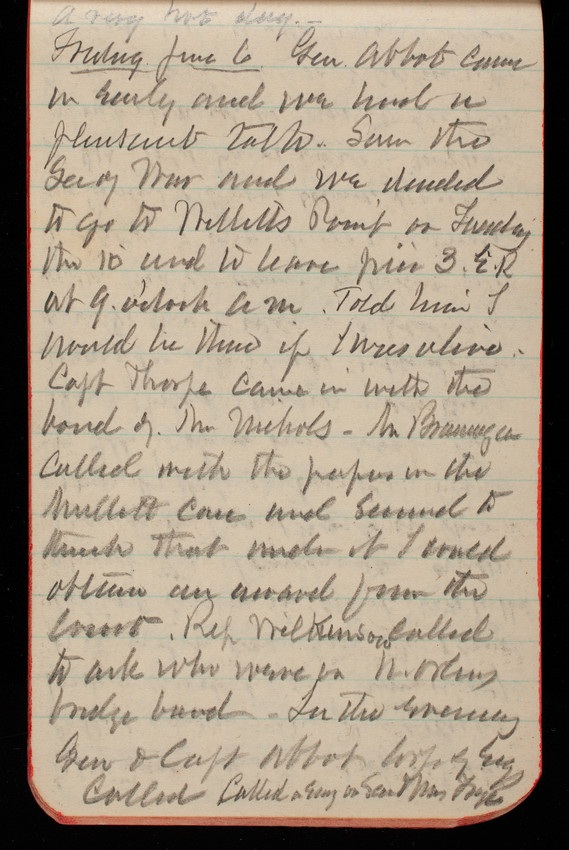 a very hot day. -
Friday June 6. Gen. Abbot came
in early and we had a
pleasant talk. Saw the
Sec of War and we decided
to go to Willetts Point on Tuesday
the 10 and to leave pier 3. E.R
at 9. o'clock a m. Told him I
would be there if I was alive.
Capt Thorpe came in with the
bond of. Mr Nichols - Mr
called with the papers in the
Mullett case and seemed to
think that under it I could
obtain an award from the
Court. Rep Wilkinson called
to ask who were on N. Orleans
bridge board - In the evening
Gen & Capt Abbot Corps of Eng
Called Called on Gen & Mrs